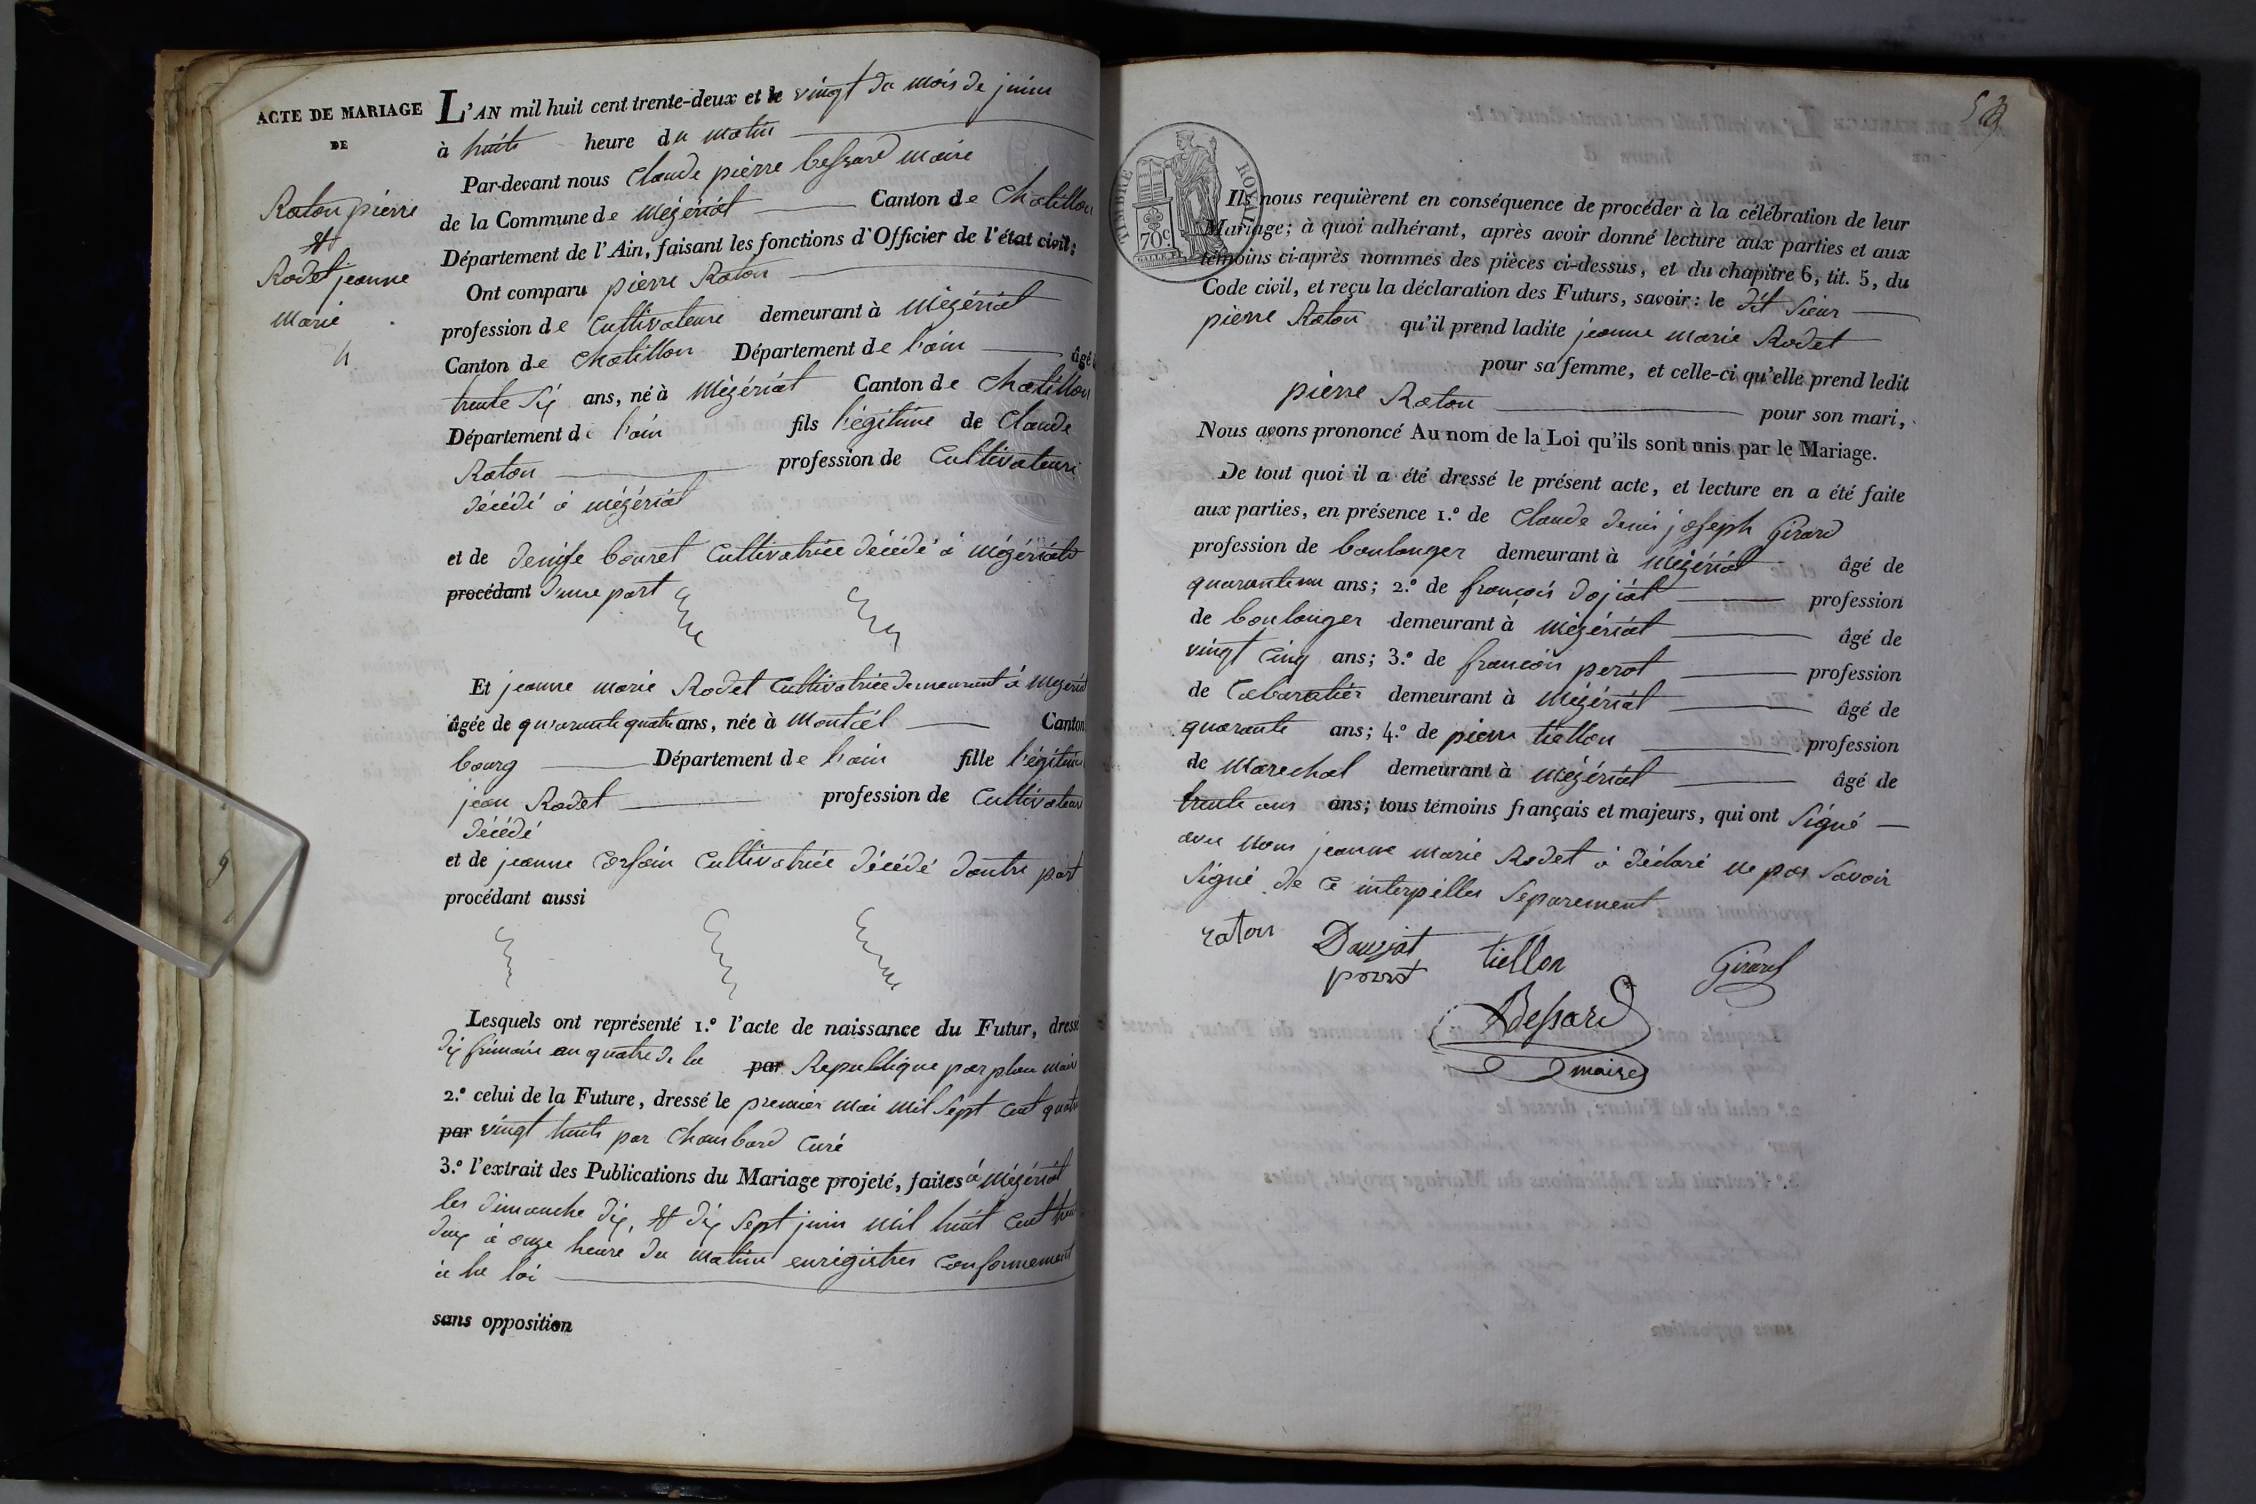 ACTE DE MARIAGE
DE
Raton pierre
et
Rodet jeanne
marie
L'AN mil huit cent trente-deux et le vingt du mois de juin
à huits heure du matin
Par-devant nous Claude pierre bessard maire
de la Commune de mézériat Canton de Chatillon
Département de l'Ain, faisant les fonctions d'Officier de l'état civil:
Ont comparu pierre Raton
profession de Cultivateure demeurant à mézériat
Canton de Chatillon Département de l'ain âgé
trente six ans, né à mézériat Canton de Chatillon
Département de l'ain fils légitime de Claude
Raton profession de Cultivateure
décédé à mézériat
et de denise bouret Cultivatrice décédé à mézériat
procédant d'une part
Et jeanne marie Rodet Cultivatrice demeurant à mézériat
âgée de quarante quatre ans, née à montcet Canton
bourg Département de l'ain fille légitime
jean Rodet profession de Cultivateur
décédé
et de jeanne Corsain Cultivatrice décédé d'autre part
procédant aussi
Lesquels ont représenté 1.° l'acte de naissance du Futur, dressé
dix frimaire an quatre de la par Republique par maire
2.° celui de la Future, dressé le premier mai mil sept cent quatre
par vingt huits par Chambard Curé
3.° l'extrait des Publications du Mariage projeté, faites à mézériat
les dimanche dix, et dix sept juin mil huit cent trente
deux à onze heure du matin enrégistres Conformement
à la loi
sans opposition
TIMBRE ROYAL
70c
Ils nous requièrent en conséquence de procéder à la célébration de leur
Mariage; à quoi adhérant, après avoir donné lecture aux parties et aux
témoins ci-après nommés des pièces ci-dessus, et du chapitre 6, tit. 5, du
Code civil, et reçu la déclaration des Futurs, savoir: le dit sieur
pierre Raton qu'il prend ladite jeanne marie Rodet
pour sa femme, et celle-ci qu'elle prend ledit
pierre Raton pour son mari,
Nous avons prononcé Au nom de la Loi qu'ils sont unis par le Mariage.
De tout quoi il a été dressé le présent acte, et lecture en a été faite
aux parties, en présence 1.° de Claude denis joseph Girard
profession de boulonger demeurant à mézériat âgé de
quaranteun ans; 2.° de françois dojat profession
de boulonger demeurant à mézériat âgé de
vingt cinq ans; 3.° de françois perot profession
de Cabaratier demeurant à mézériat âgé de
quarante ans; 4.° de pierre tiellon profession
de marechal demeurant à mézériat âgé de
trente ans ans; tous témoins français et majeurs, qui ont signé
avec nous jeanne marie Rodet à déclaré ne pas savoir
signé de ce interpélles separement
raton Daujat tiellon Girard
perrot
Bessard
maire